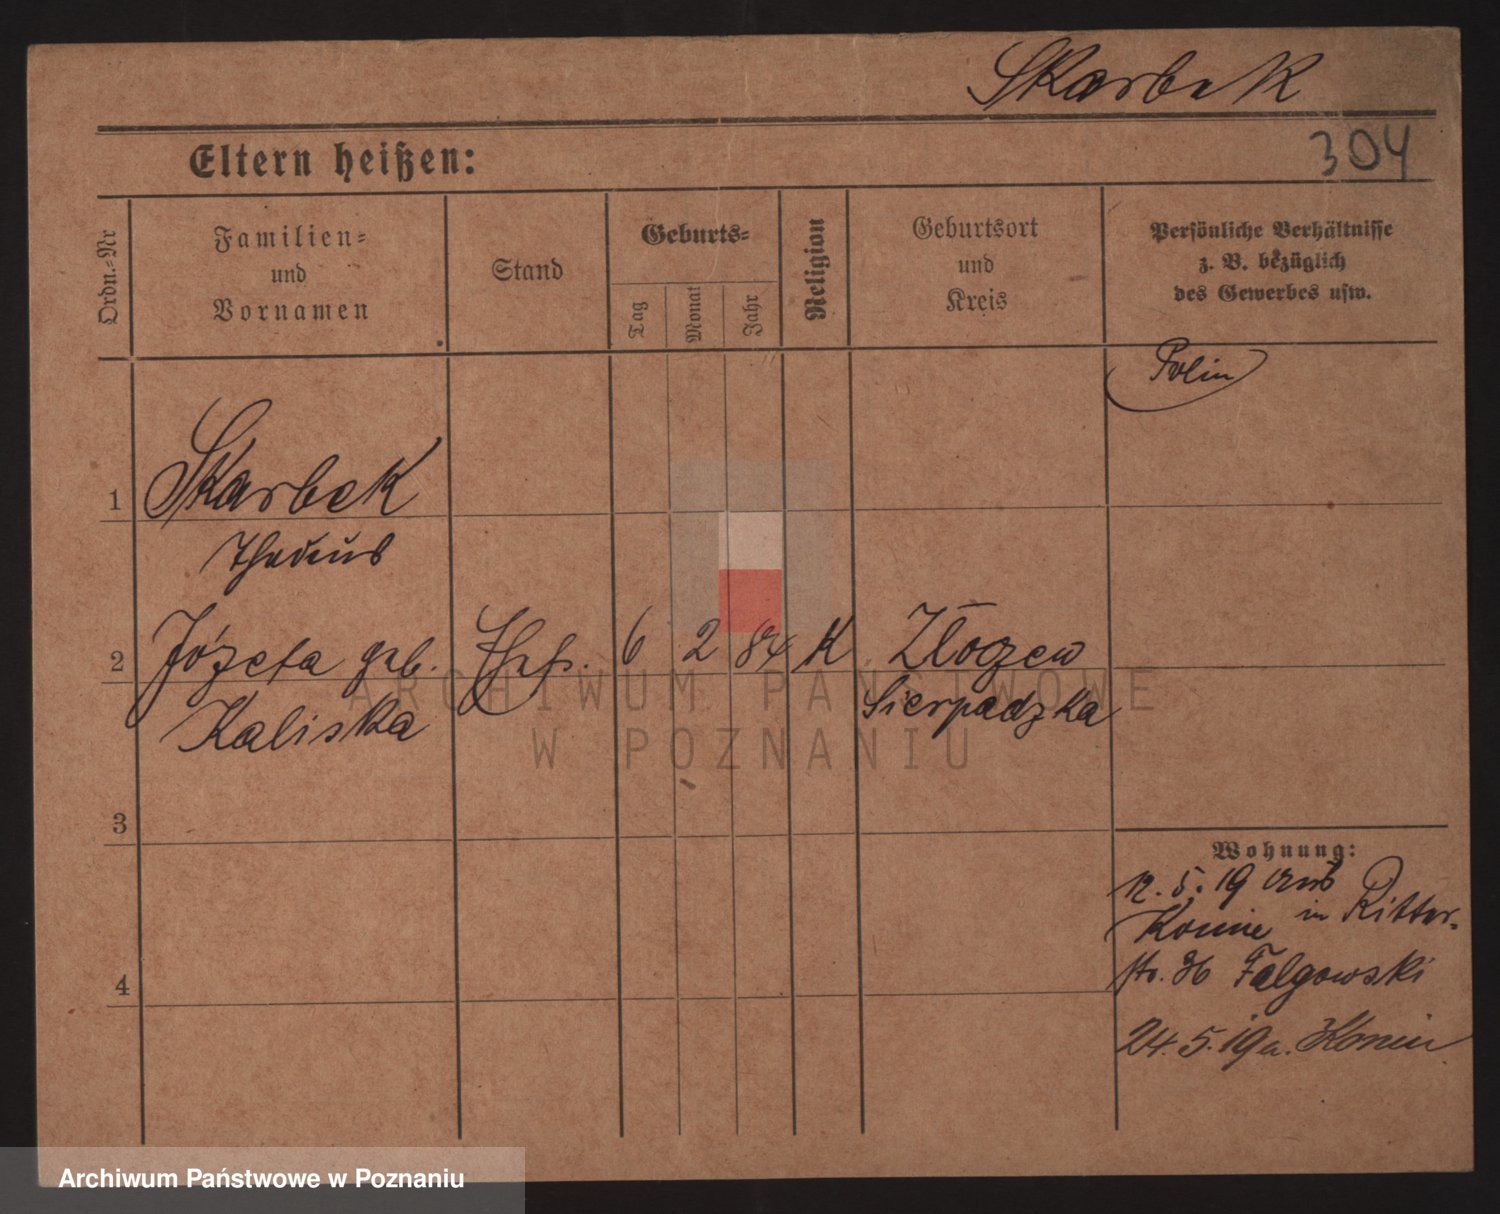 Skarbek
304
Eltern heißen:
Ordn.-Nr
Familien-
und
Vornamen
Stand
Geburts-
Tag
Monat
Jahr
Religion
Geburtsort
und
Kreis
Persönliche Verhältnisse
z. B. bezüglich
des Gewerbes usw.
Polin
1 Skarbek
Thadeus
2 Józefa geb. Ehefr. 6 2 84 K Złoczew
Kaliska Sierpadzka
3
4
Wohnung:
12. 5. 19 aus
Konin in Ritter-
str. 36 Falgowski
24. 5. 19 n. Konin
ARCHIWUM PAŃSTWOWE
W POZNANIU
Archiwum Państwowe w Poznaniu